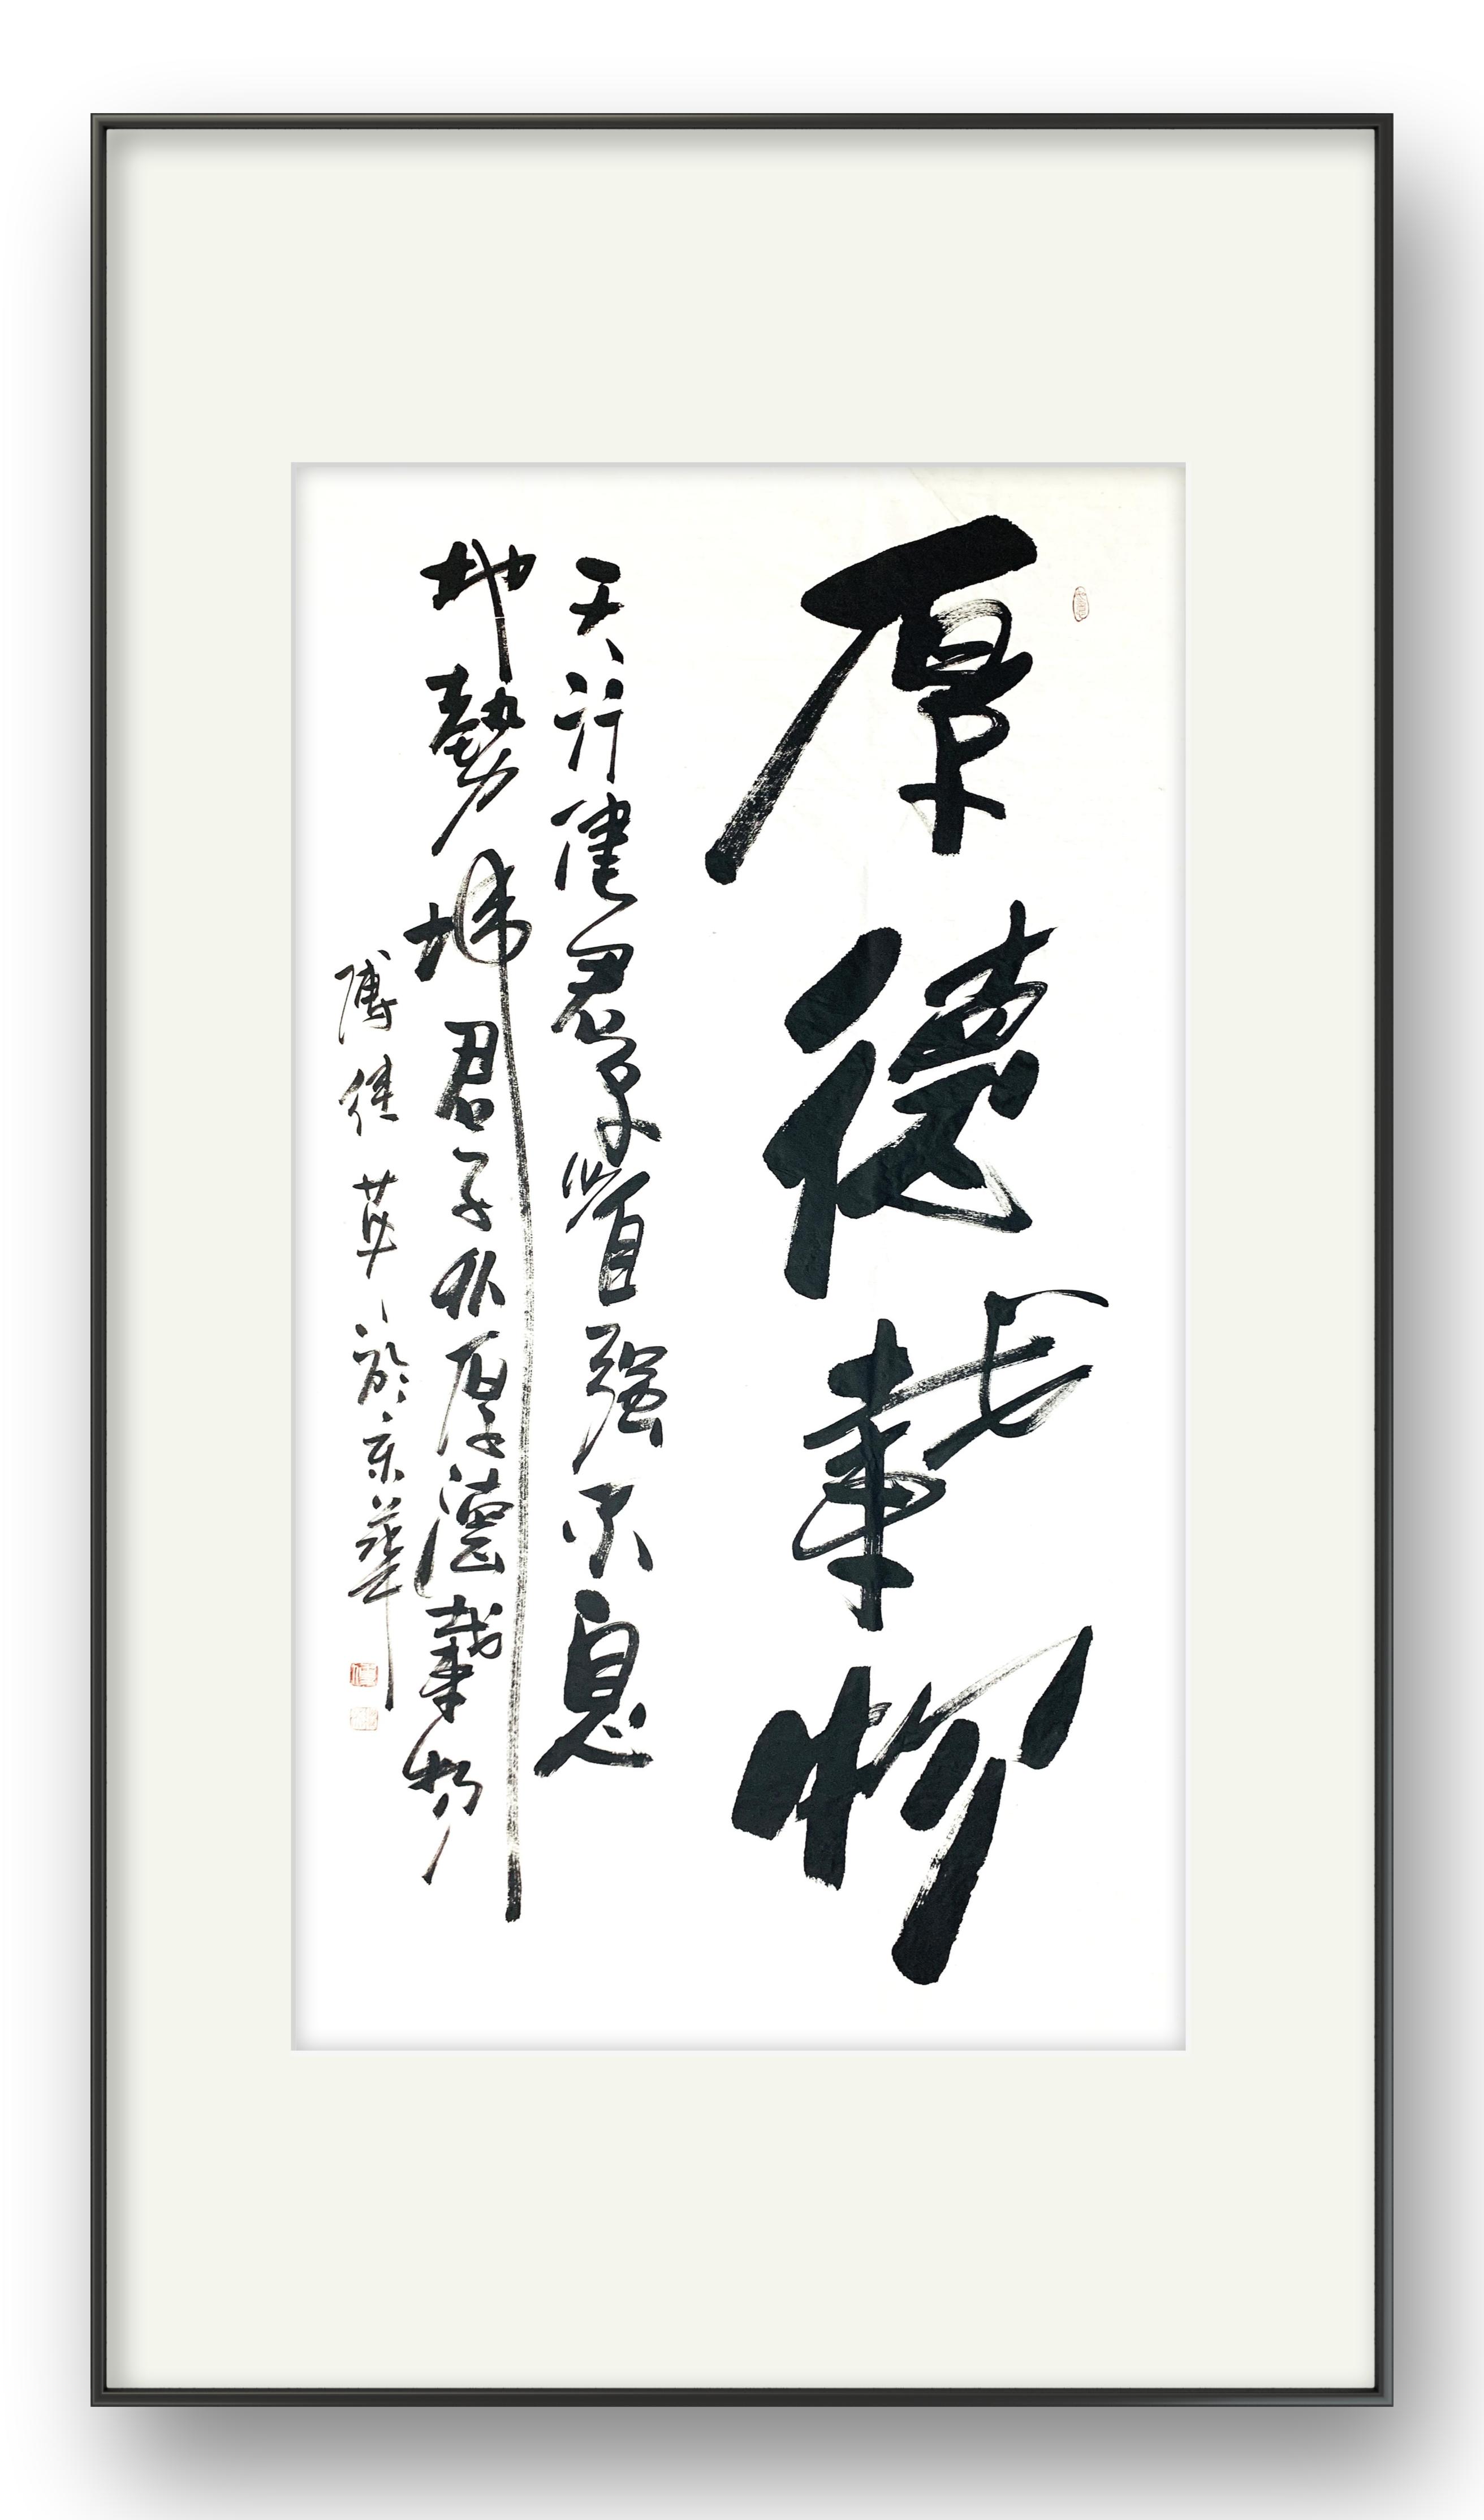 厚德載物
天行健君子以自强不息
地勢坤君子以厚德載物
傅佳於京華